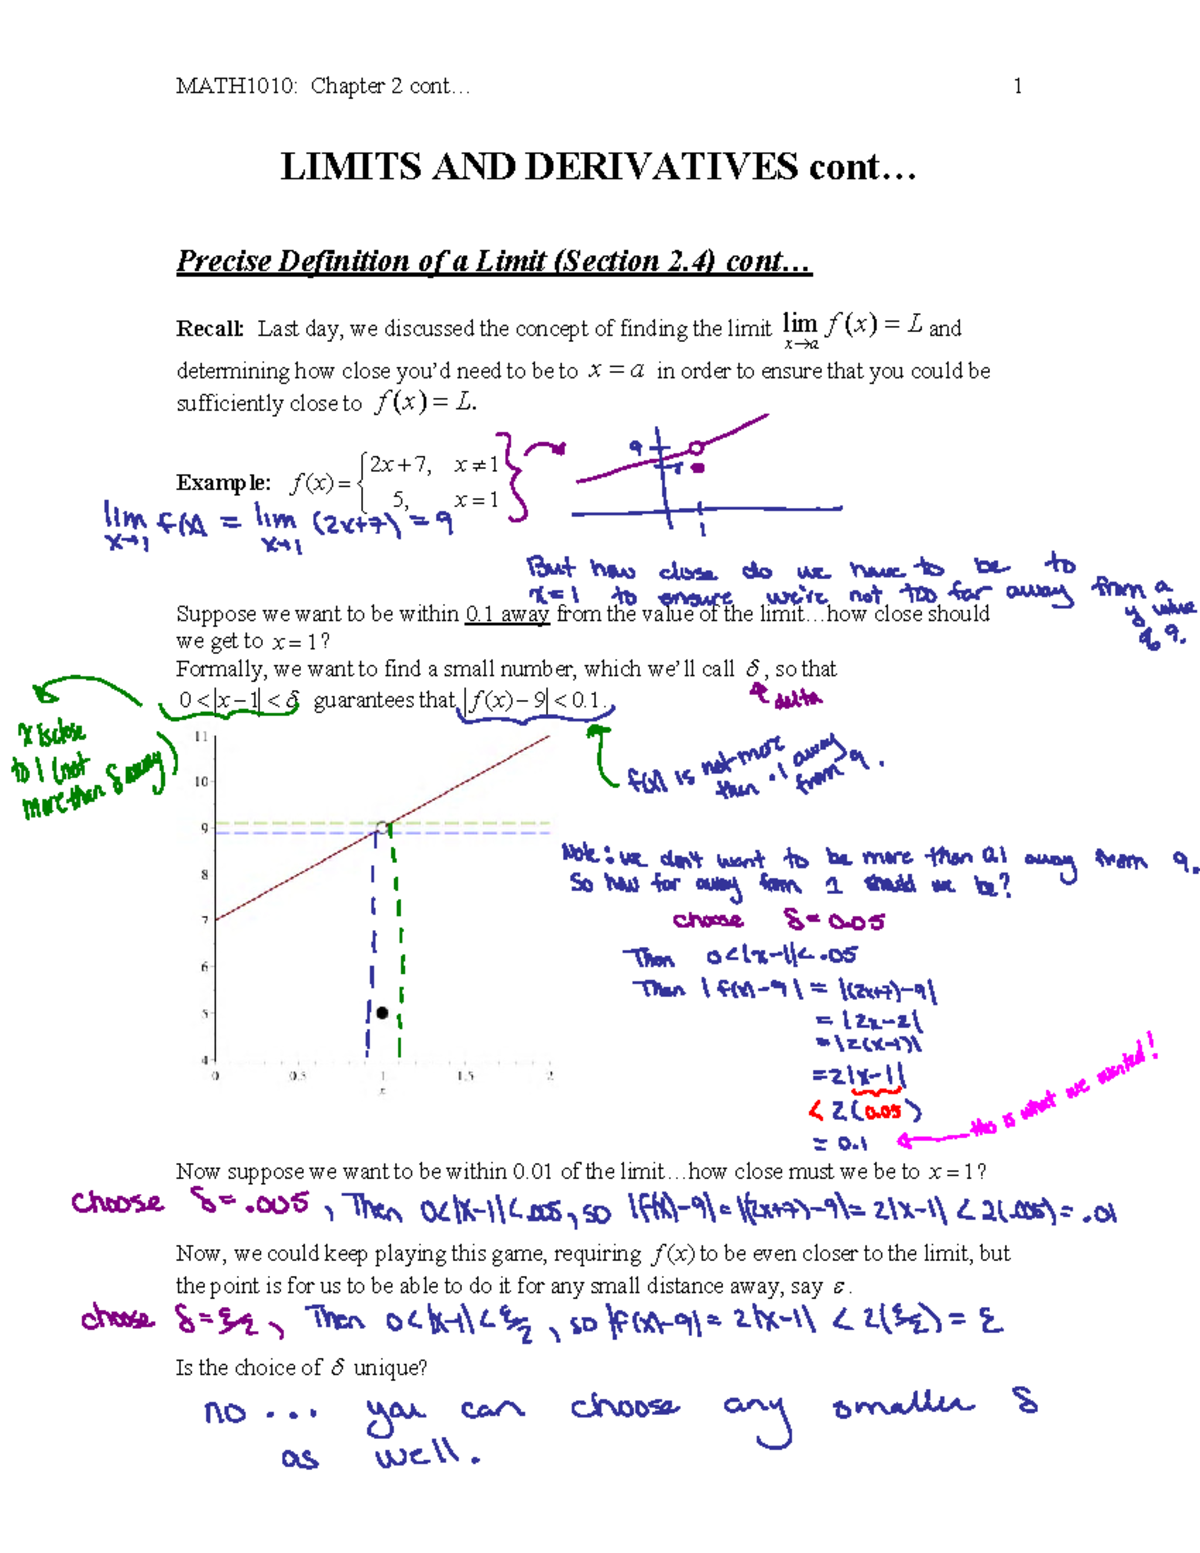 MATH1010: Chapter 2 cont... 1
LIMITS AND DERIVATIVES cont...
Precise Definition of a Limit (Section 2.4) cont...
Recall: Last day, we discussed the concept of finding the limit lim f(x) = L and
x→a
determining how close you'd need to be to x = a in order to ensure that you could be
sufficiently close to f(x) = L.
Example: f(x) = { 2x+7, x ≠ 1
5, x = 1
9
5
1
lim f(x) = lim (2x+7) = 9
x→1 x→1
But how close do we have to be to
x=1 to ensure we're not too far away from a
y value
of 9.
Suppose we want to be within 0.1 away from the value of the limit...how close should
we get to x = 1?
Formally, we want to find a small number, which we'll call δ, so that
0 < |x − 1| < δ guarantees that |f(x) − 9| < 0.1.
delta
x is close
to 1 (not
more than δ away)
f(x) is not more
than .1 away
from 9.
11
10
9
8
7
6
5
4
0 0.5 1 1.5 2
x
Note: we don't want to be more than 0.1 away from 9.
So how far away from 1 should we be?
choose δ = 0.05
Then 0<|x-1|<.05
Then |f(x)-9| = |(2x+7)-9|
= |2x-2|
= |2(x-1)|
= 2|x-1|
< 2(0.05)
= 0.1
this is what we wanted!
Now suppose we want to be within 0.01 of the limit...how close must we be to x = 1?
choose δ = .005, Then 0<|x-1|<.005, so |f(x)-9| = |(2x+7)-9| = 2|x-1| < 2(.005) = .01
Now, we could keep playing this game, requiring f(x) to be even closer to the limit, but
the point is for us to be able to do it for any small distance away, say ε.
choose δ = ε/2, Then 0<|x-1|<ε/2, so |f(x)-9| = 2|x-1| < 2(ε/2) = ε
Is the choice of δ unique?
no... you can choose any smaller δ
as well.